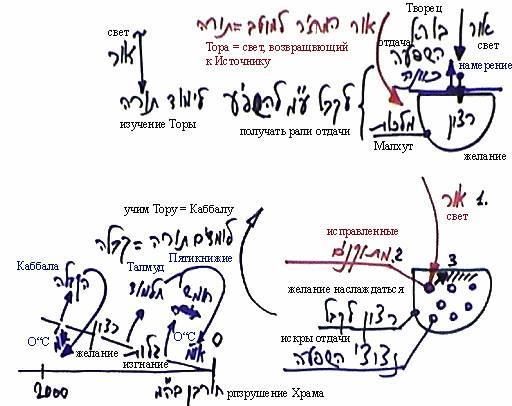 Творец
свет
אור
אור המחזיר למוטב = תורה
Тора = свет, возвращвющий
к Источнику
отдача
השפעה
כוונה
אור
свет
намерение
לימוד תורה
изучение Торы
לקבל ע"מ להשפיע
получать рали отдачи
מלכות
Малхут
רצון
желание
учим Тору = Каббалу
לומדים תורה = קבלה
אור 1.
свет
исправленные
2. מתוקנים
3
Каббала
קבלה
Талмуд
תלמוד
Пятикнижие
חומש
желание наслаждаться
רצון לקבל
искры отдачи
ניצוצי השפעה
О"С
желание
רצון
изгнание
גלות
О"С
0
2000
חורבן ביהמ"ק
рпзрушение Храма